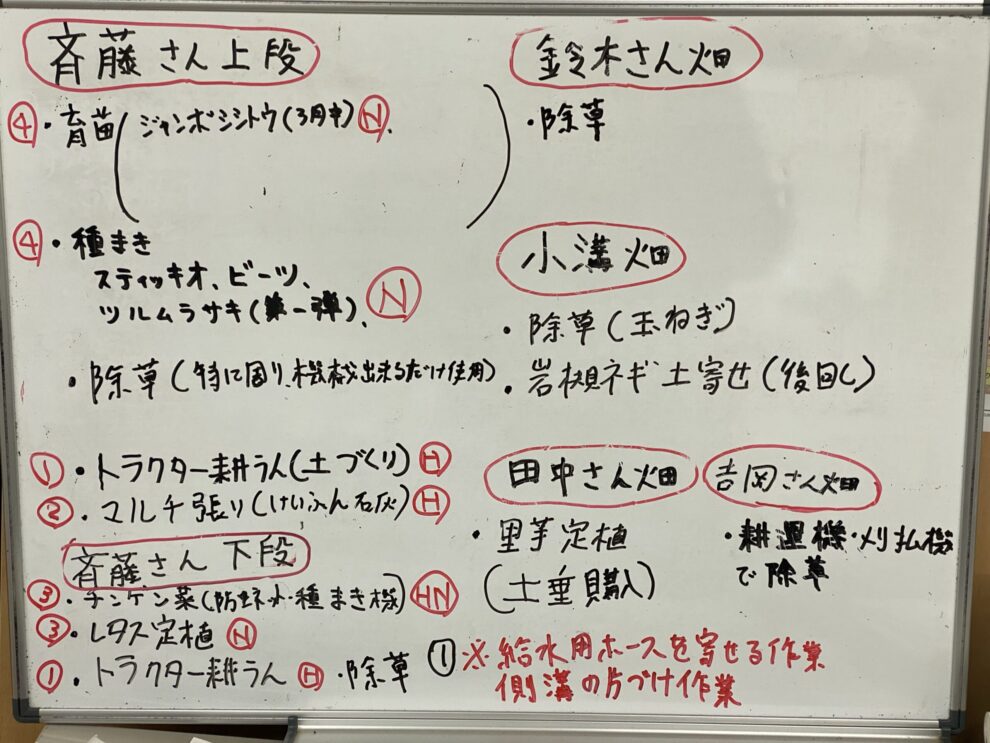 斉藤さん上段
④・育苗(ジャンボシシトウ(3月中)Ⓝ、)
④・種まき
スティッキオ、ビーツ、
ツルムラサキ(第一弾)、Ⓝ
・除草(特に周り、機械出来るだけ使用)
①・トラクター耕うん(土づくり)Ⓗ
②・マルチ張り(けいふん石灰)Ⓗ
斉藤さん下段
③・チンゲン菜(防虫ネット・種まき機)HN
③・レタス定植Ⓝ
①・トラクター耕うんⒽ・除草
鈴木さん畑
・除草
小溝畑
・除草(玉ねぎ)
・岩槻ネギ土寄せ(後回し)
田中さん畑
・里芋定植
(土垂購入)
吉岡さん畑
・耕運機・刈払機
で除草
①※給水用ホースを寄せる作業
側溝の片づけ作業